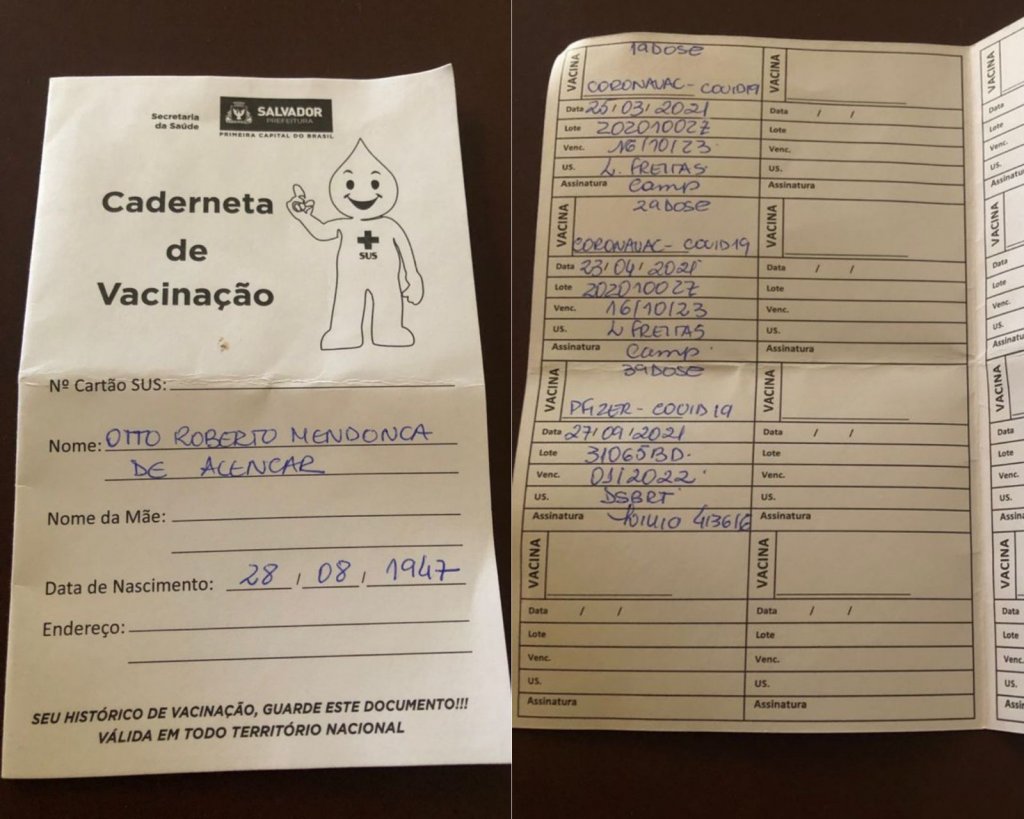 Secretaria
da Saúde
SALVADOR
PREFEITURA
PRIMEIRA CAPITAL DO BRASIL
Caderneta
de
Vacinação
SUS
Nº Cartão SUS:
Nome: OTTO ROBERTO MENDONCA
DE ALENCAR
Nome da Mãe:
Data de Nascimento: 28 / 08 / 1947
Endereço:
SEU HISTÓRICO DE VACINAÇÃO, GUARDE ESTE DOCUMENTO!!!
VÁLIDA EM TODO TERRITÓRIO NACIONAL
VACINA 1ª DOSE
CORONAVAC - COVID19
Data 25/03/2021
Lote 202010027
Venc. 16/10/23
US. L. FREITAS
Assinatura Camp
VACINA
Data / /
Lote
Venc.
US.
Assinatura
VACINA 2ª DOSE
CORONAVAC - COVID19
Data 23/04/2021
Lote 202010027
Venc. 16/10/23
US. L FREITAS
Assinatura Camp
VACINA
Data / /
Lote
Venc.
US.
Assinatura
VACINA 3ª DOSE
PFIZER - COVID19
Data 27/09/2021
Lote 31065BD.
Venc. 01/2022
US. DSBRT
Assinatura 413616
VACINA
Data / /
Lote
Venc.
US.
Assinatura
VACINA
Data / /
Lote
Venc.
US.
Assinatura
VACINA
Data / /
Lote
Venc.
US.
Assinatura
VACINA
Data
Lote
Venc.
US.
Assinatura
VACINA
Data
Lote
Venc.
US.
VACINA
Data
Lote
Venc.
US.
VACINA
Data
Lote
Venc.
US.